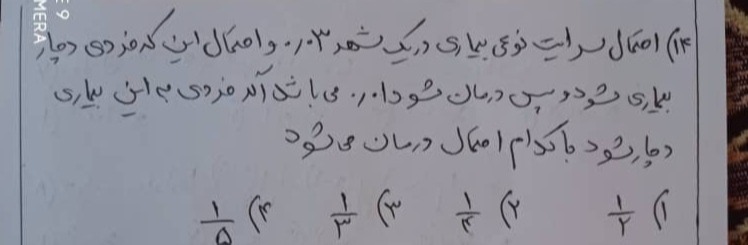 ۱۴) احتمال سرایت نوعی بیماری در یک شهر ۰.۰۳ و احتمال این که فردی دچار
بیماری شود و سپس درمان شود ۰.۰۱ می باشد اگر فردی به این بیماری
دچار شود با کدام احتمال درمان می شود
۱) ۱/۲ ۲) ۱/۴ ۳) ۱/۳ ۴) ۱/۵
9
MERA